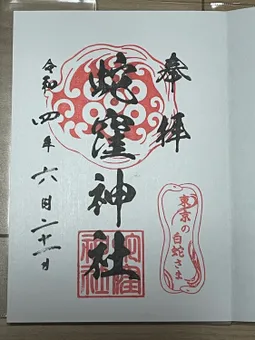 奉拝
蛇窪神社
令和四年六月二十一日
東京の
白蛇さま